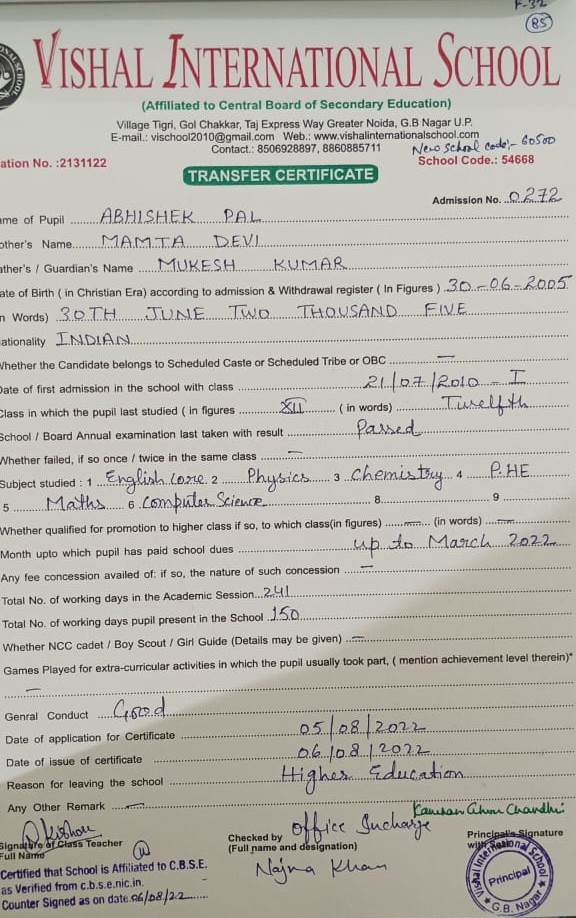 F-32
85
VISHAL INTERNATIONAL SCHOOL
(Affiliated to Central Board of Secondary Education)
Village Tigri, Gol Chakkar, Taj Express Way Greater Noida, G.B Nagar U.P.
E-mail.: vischool2010@gmail.com Web.: www.vishalinternationalschool.com
Contact.: 8506928897, 8860885711 New School code:- 60500
ation No. :2131122 School Code.: 54668
TRANSFER CERTIFICATE
Admission No. 0272
me of Pupil ABHISHEK PAL
other's Name MAMTA DEVI
ather's / Guardian's Name MUKESH KUMAR
ate of Birth ( in Christian Era) according to admission & Withdrawal register ( In Figures ) 30-06-2005
n Words) 30TH JUNE TWO THOUSAND FIVE
ationality INDIAN
Whether the Candidate belongs to Scheduled Caste or Scheduled Tribe or OBC —
Date of first admission in the school with class 21/07/2010 - I
Class in which the pupil last studied ( in figures XII ( in words) Twelfth
School / Board Annual examination last taken with result Passed
Whether failed, if so once / twice in the same class —
Subject studied : 1 English Core 2 Physics 3 Chemistry 4 P.HE
5 Maths 6 Computer Science 8 9
Whether qualified for promotion to higher class if so, to which class(in figures) — (in words) —
Month upto which pupil has paid school dues up to March 2022
Any fee concession availed of: if so, the nature of such concession —
Total No. of working days in the Academic Session 241
Total No. of working days pupil present in the School 150
Whether NCC cadet / Boy Scout / Girl Guide (Details may be given) —
Games Played for extra-curricular activities in which the pupil usually took part, ( mention achievement level therein)*
—
Genral Conduct Good
Date of application for Certificate 05/08/2022
Date of issue of certificate 06/08/2022
Reason for leaving the school Higher Education
Any Other Remark —
Signature of Class Teacher
Full Name
Checked by Office Incharge
(Full name and designation)
Najma Khan
Principal's Signature
with
Vishal International School
Principal
G.B. Nagar
Certified that School is Affiliated to C.B.S.E.
as Verified from c.b.s.e.nic.in.
Counter Signed as on date 06/08/22